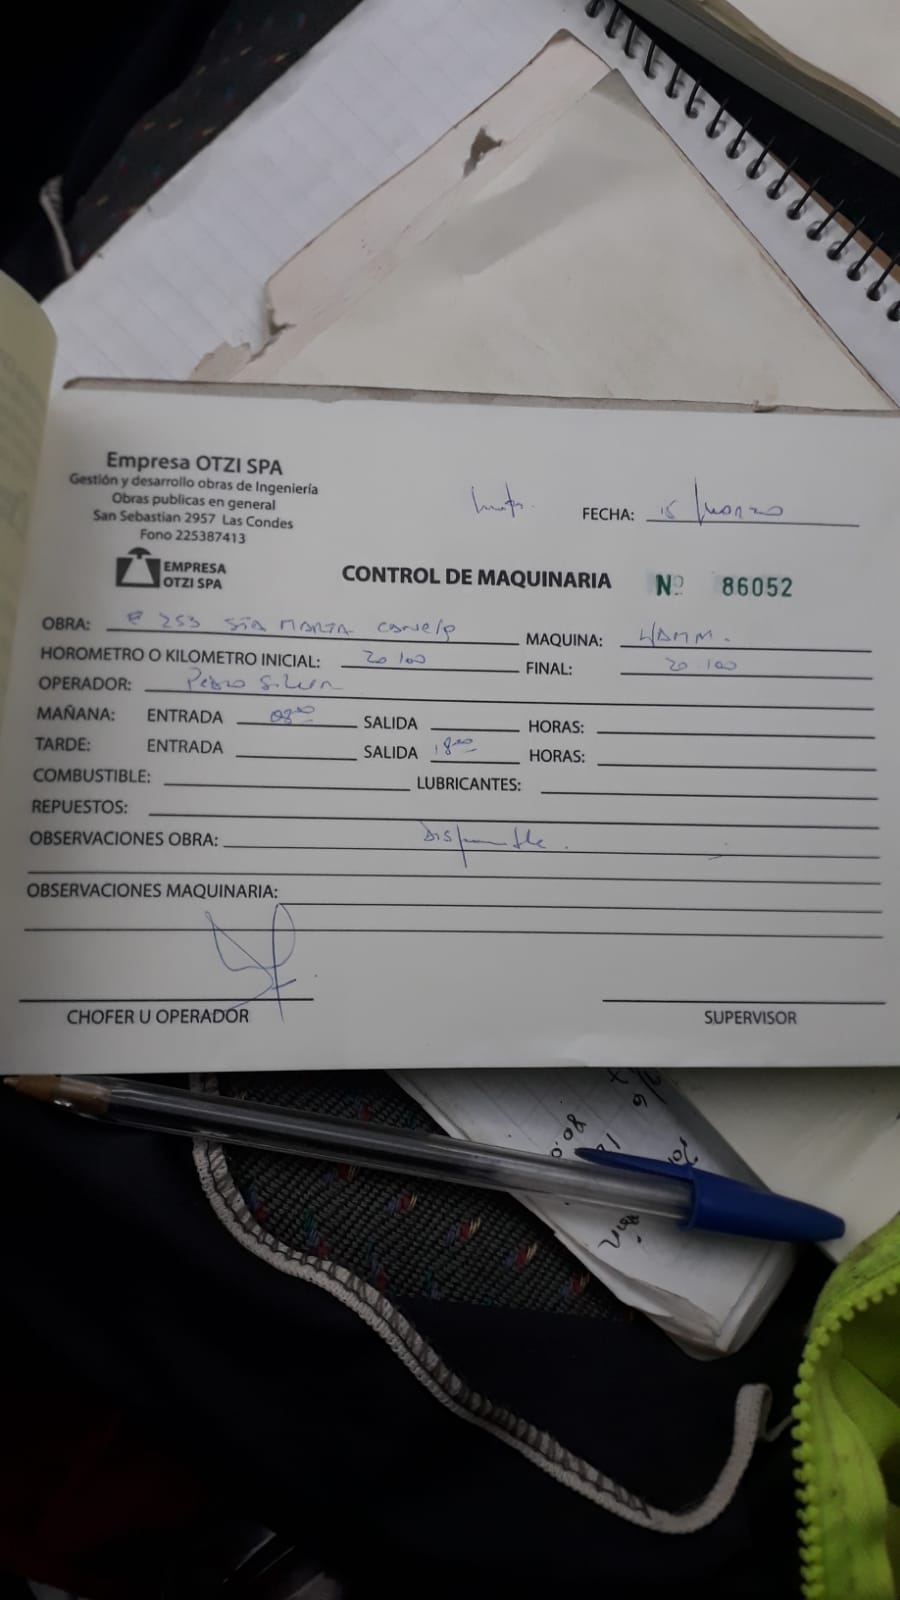 Empresa OTZI SPA
Gestión y desarrollo obras de Ingeniería
Obras publicas en general
San Sebastian 2957 Las Condes
Fono 225387413
EMPRESA
OTZI SPA
FECHA: 15 Marzo
CONTROL DE MAQUINARIA Nº 86052
OBRA: 253 Sta MARTA MAQUINA: HAMM.
HOROMETRO O KILOMETRO INICIAL: 20100 FINAL: 20100
OPERADOR: Pedro Silva
MAÑANA: ENTRADA 08:00 SALIDA HORAS:
TARDE: ENTRADA SALIDA 18:00 HORAS:
COMBUSTIBLE: LUBRICANTES:
REPUESTOS:
OBSERVACIONES OBRA: Disponible.
OBSERVACIONES MAQUINARIA:
CHOFER U OPERADOR SUPERVISOR